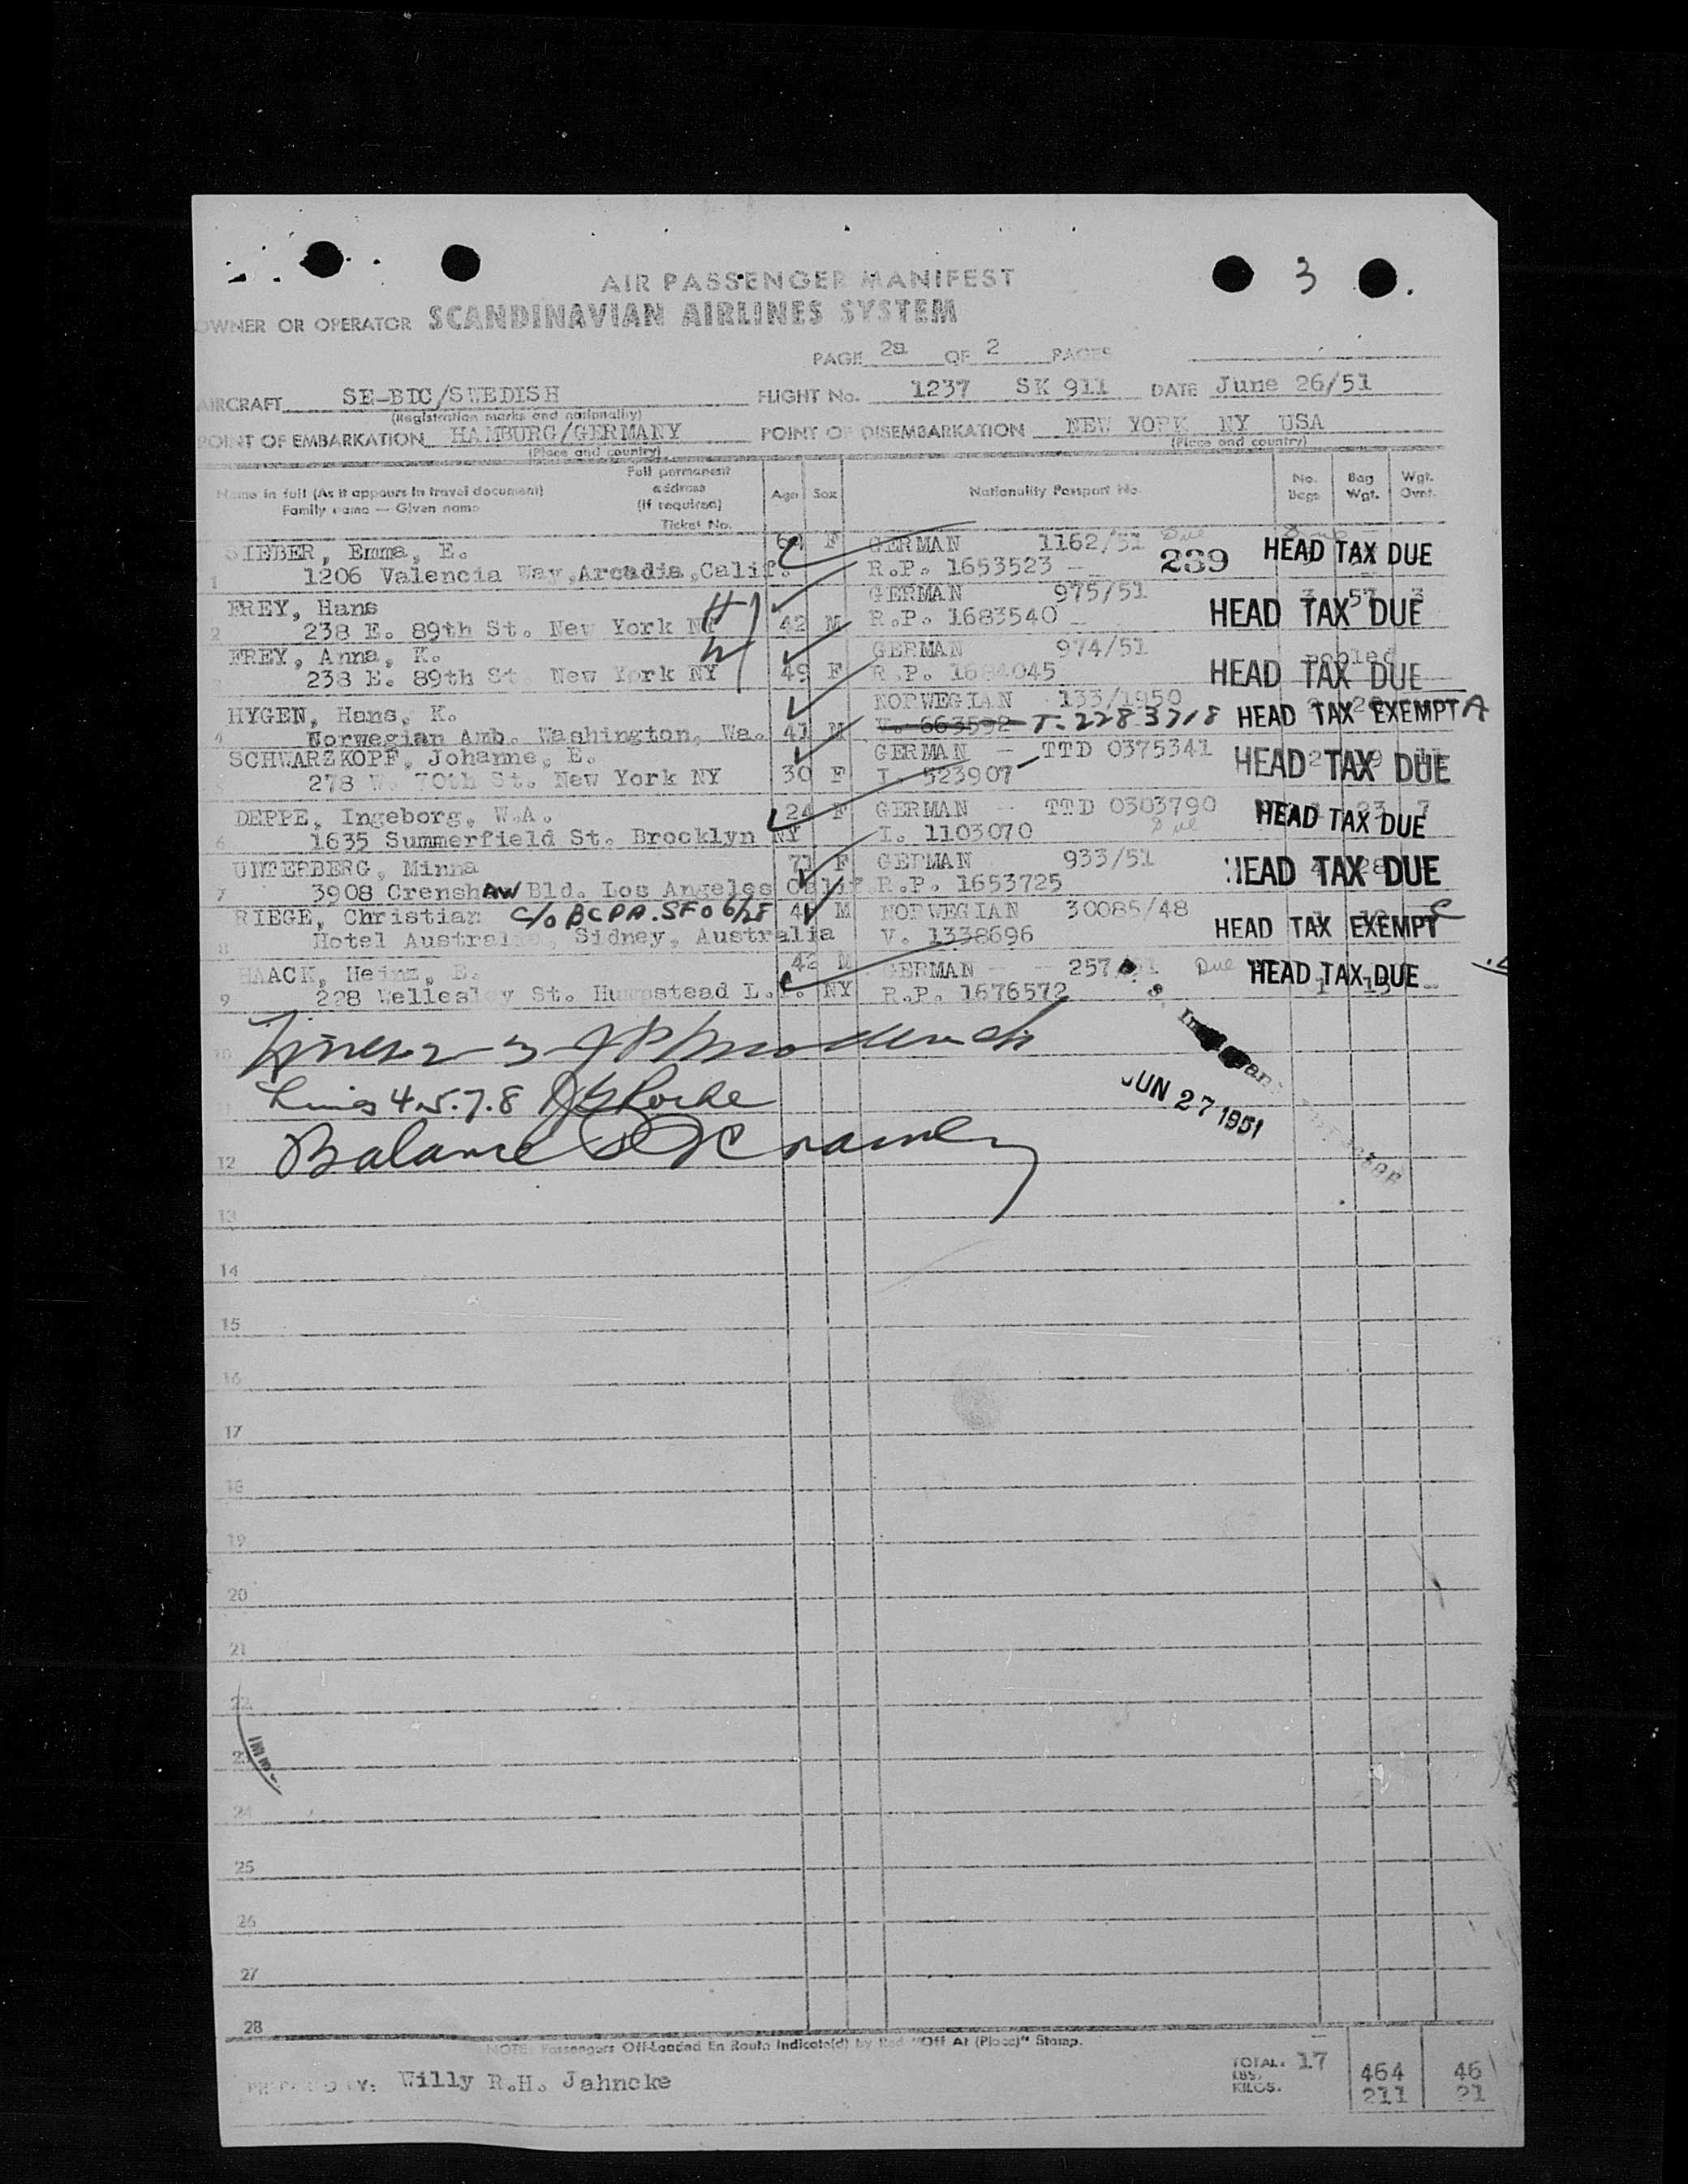 3
AIR PASSENGER MANIFEST
OWNER OR OPERATOR SCANDINAVIAN AIRLINES SYSTEM
PAGE 2a OF 2 PAGES
AIRCRAFT SE-BDC/SWEDISH FLIGHT No. 1237 SK 911 DATE June 26/51
(Registration marks and nationality)
POINT OF EMBARKATION HAMBURG/GERMANY POINT OF DISEMBARKATION NEW YORK NY USA
(Place and country) (Place and country)
Name in full (As it appears in travel document) Family name — Given name Full permanent address (If required) Ticket No. Age Sex Nationality Passport No. No. Bags Bag Wgt. Wgt. Ovnt.
SIEBER, Emma, E. F GERMAN 1162/51 Due
1 1206 Valencia Way, Arcadia, Calif. R.P. 1653523 239 HEAD TAX DUE
FREY, Hans H GERMAN 975/51 3 57 3
2 238 E. 89th St. New York NY 42 M R.P. 1683540 HEAD TAX DUE
FREY, Anna, K. W GERMAN 974/51 pooled
3 238 E. 89th St. New York NY 49 F R.P. 1684045 HEAD TAX DUE
HYGEN, Hans, K. NORWEGIAN 133/1950
4 Norwegian Amb. Washington, Wa. 41 M V. 663592 T-2283718 HEAD TAX EXEMPT A
SCHWARZKOPF, Johanne, E. GERMAN — TTD 0375341
5 278 W. 70th St. New York NY 30 F I. 523907 HEAD TAX DUE
DEPPE, Ingeborg, W.A. 24 F GERMAN — TTD 0303790 23 7
6 1635 Summerfield St. Brooklyn NY I. 1103070 Due HEAD TAX DUE
UNTERBERG, Minna 71 F GERMAN 933/51
7 3908 Crenshaw Bld. Los Angeles Calif. R.P. 1653725 HEAD TAX DUE
RIEGE, Christian c/o BCPA. SFO 6/28 M NORWEGIAN 30085/48
8 Hotel Australia, Sidney, Australia V. 1338696 HEAD TAX EXEMPT
HAACK, Heinz, E. 42 M GERMAN — 257 Due HEAD TAX DUE
9 228 Wellesley St. Humpstead L.I. NY R.P. 1676572
10 Lines 2-3
11 Lines 4.5.7.8
JUN 27 1951
12 Balance
13
14
15
16
17
18
19
20
21
22
23
24
25
26
27
28
NOTE: Passengers Off-Loaded En Route Indicate(d) by Red "Off At (Place)" Stamp.
PREPARED BY: Willy R.H. Jahncke
TOTAL. 17
LBS. 464 46
KILOS. 211 21